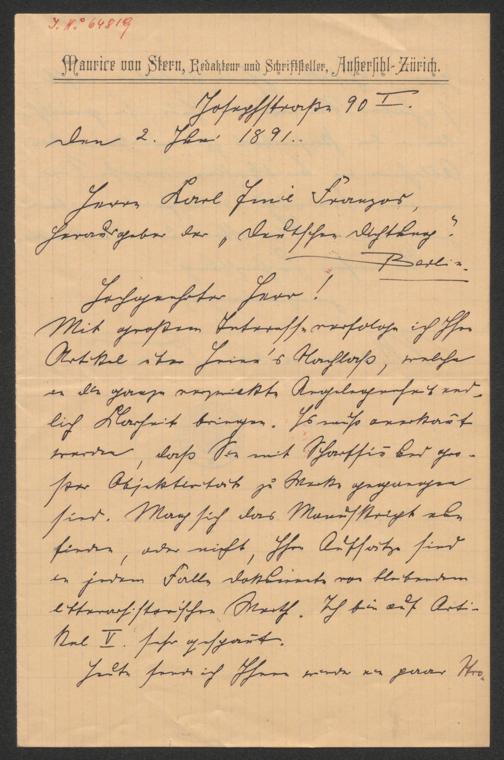 J. N.° 64819
Maurice von Stern, Redakteur und Schriftsteller, Außersihl-Zürich.
Josephstraße 90 I.
den 2. Juni 1891.
Herrn Karl Emil Franzos,
Herausgeber der „Deutschen Dichtung".
Berlin.
Hochgeehrter Herr!
Mit großem Interesse verfolge ich Ihre
Artikel über Heine's Nachlaß, welche
in die ganze verzwickte Angelegenheit end-
lich Klarheit bringen. Es muß anerkannt
werden, daß Sie mit Scharfsinn und gro-
ßer Objektivität zu Werke gegangen
sind. Mag sich das Manuskript nun
finden, oder nicht, Ihre Aufsätze sind
in jedem Falle Dokumente von bleibendem
litterarhistorischen Werth. Ich bin auf Arti-
kel V. sehr gespannt.
Heute sende ich Ihnen wieder ein paar